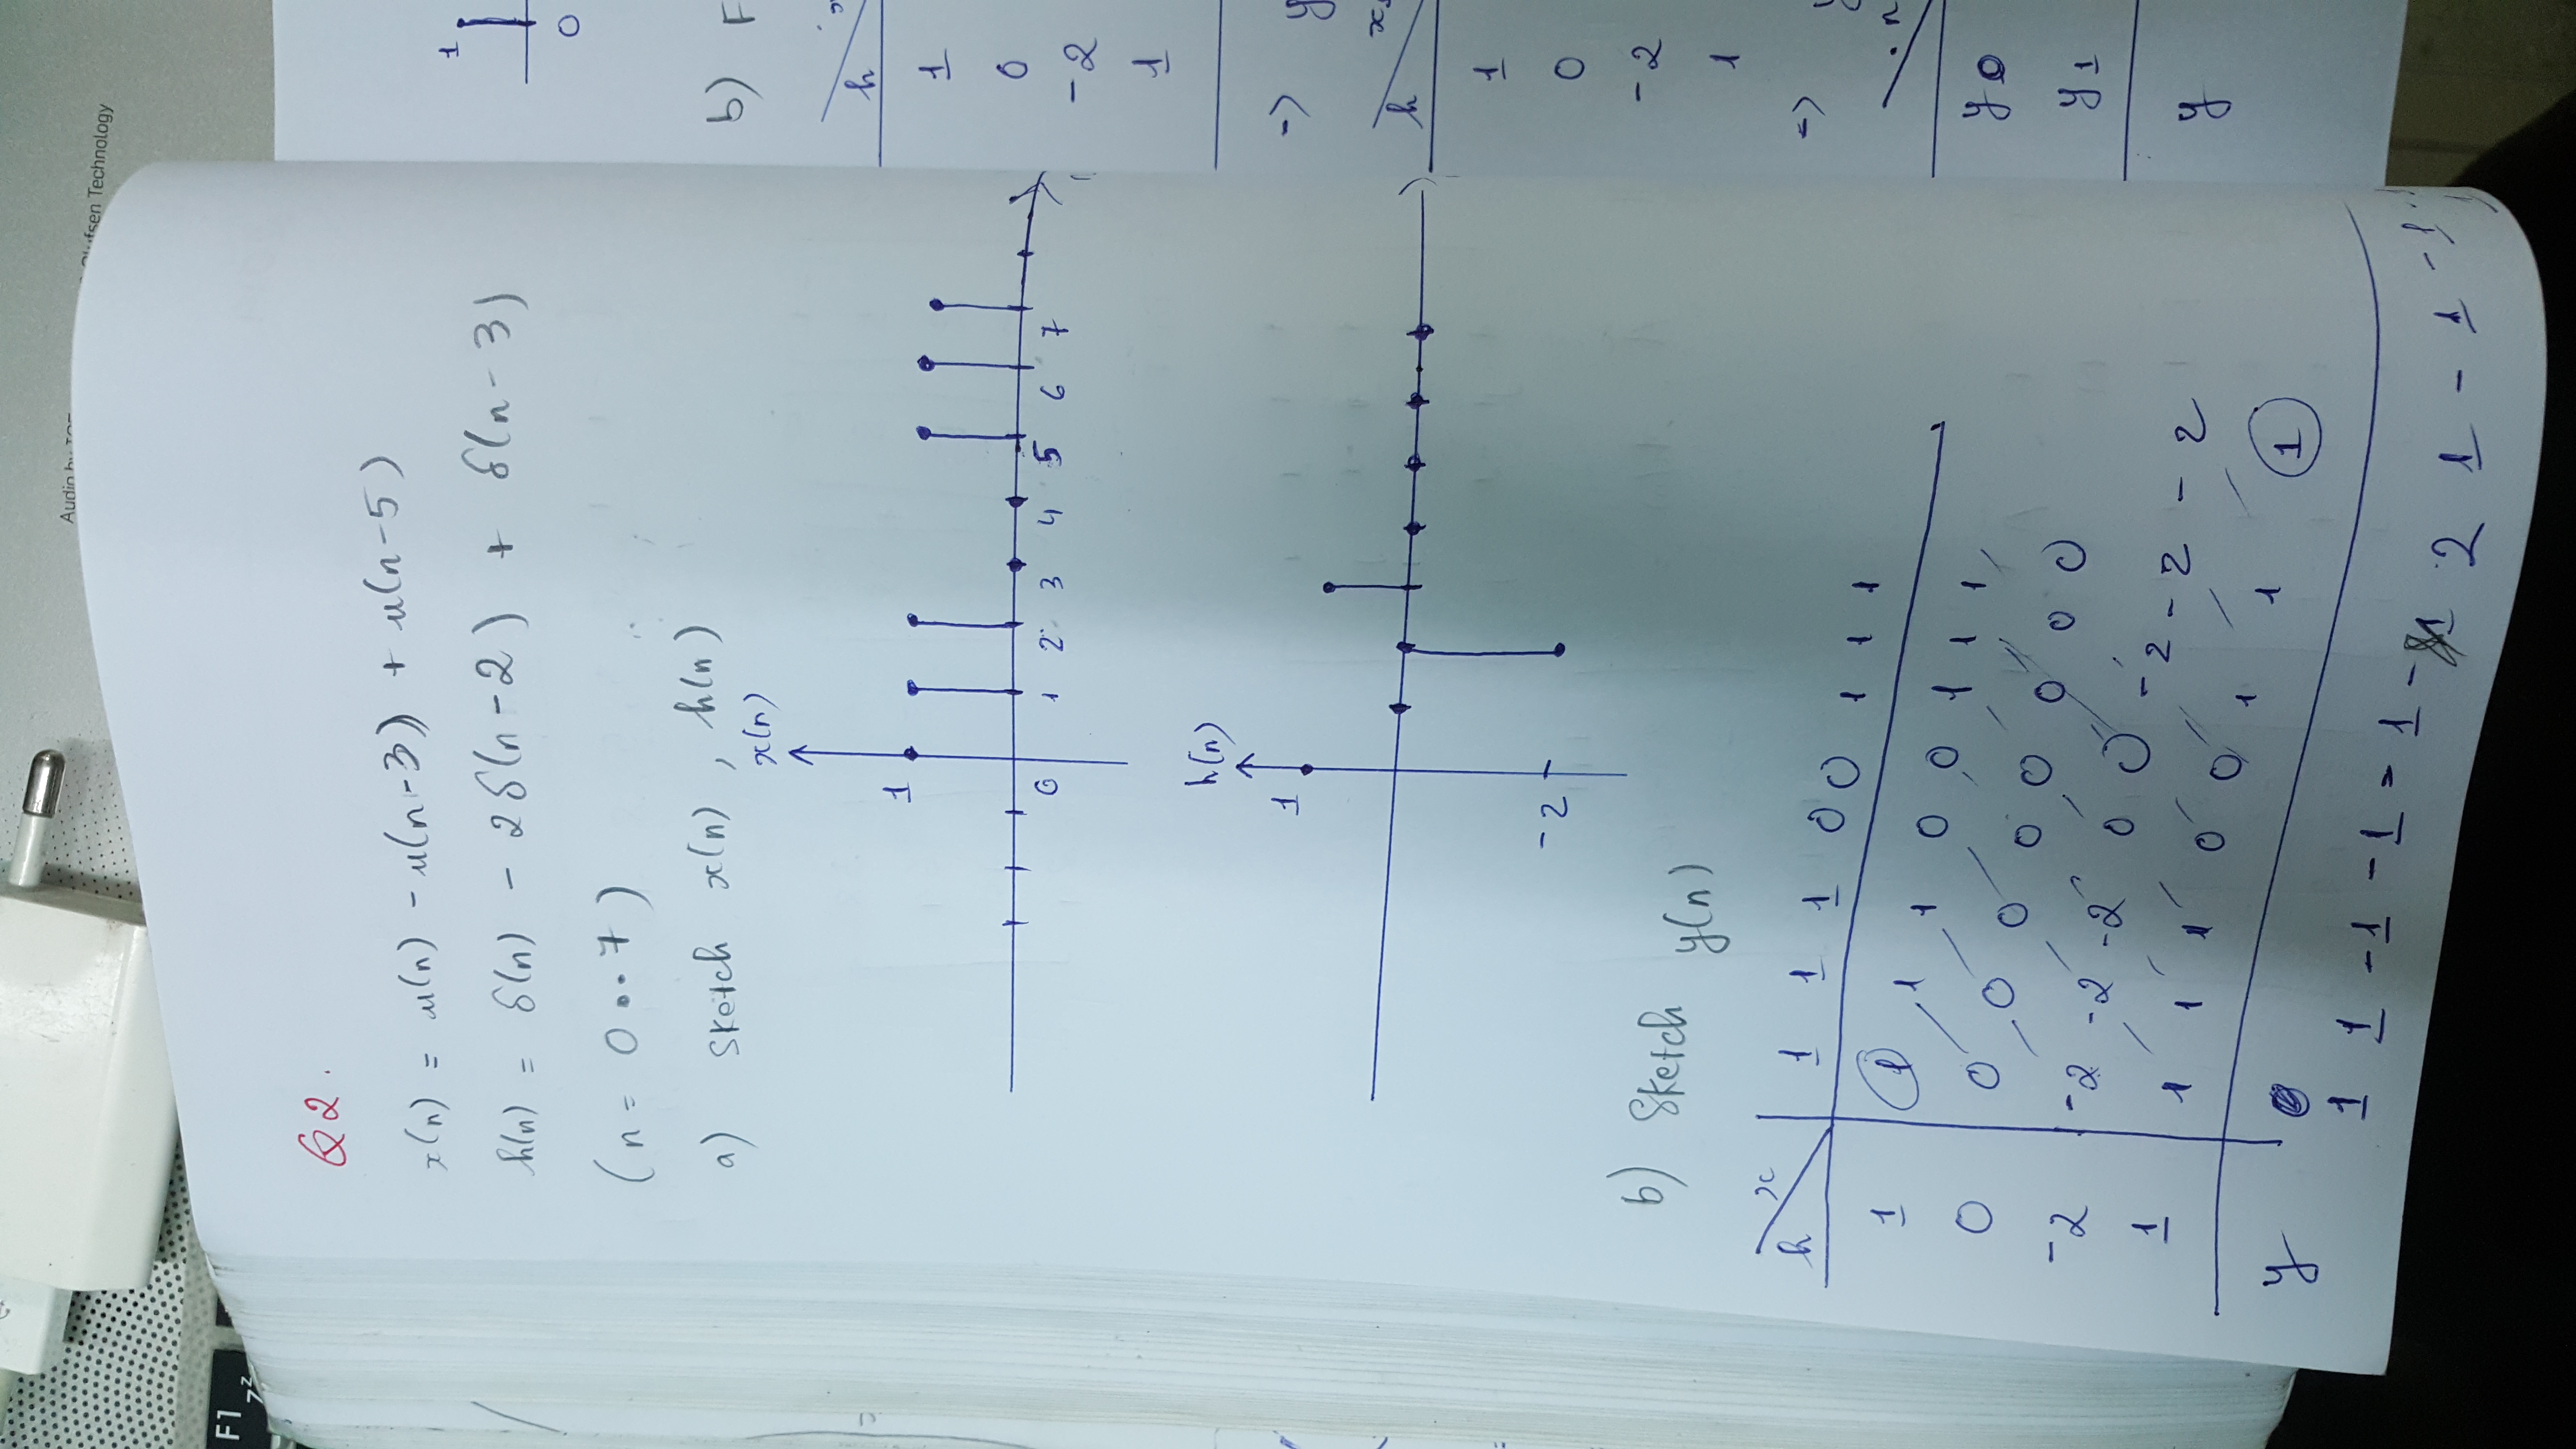 F1
zz
Audio by
Olufsen Technology
Q2.
x(n) = u(n) - u(n-3)) + u(n-5)
h(n) = δ(n) - 2δ(n-2) + δ(n-3)
(n = 0..7)
a) Sketch x(n), h(n)
x(n)
1
0 1 2 3 4 5 6 7
h(n)
1
-2
b) Sketch y(n)
h x 1 1 1 0 0 1 1 1
1 1 1 1 0 0 1 1 1
0 0 0 0 0 0 0 0 0
-2 -2 -2 -2 0 0 -2 -2 -2
1 1 1 1 0 0 1 1 1
y
1 1 -1 -1 - 1 - 1 2 1 - 1 -1
1
0
b) F
h
1
0
-2
1
-> y
h x
1
0
-2
1
->
n
y0
y1
y